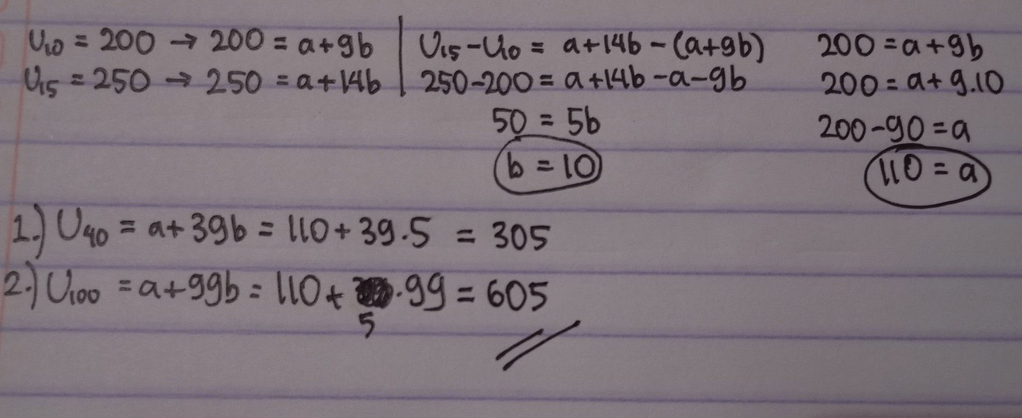 U10 = 200 → 200 = a+9b
U15 = 250 → 250 = a+14b
U15-U10 = a+14b-(a+9b)
250-200 = a+14b-a-9b
50 = 5b
b = 10
200 = a+9b
200 = a+9.10
200-90 = a
110 = a
1.) U40 = a+39b = 110+39.5 = 305
2.) U100 = a+99b = 110+ 5 .99 = 605